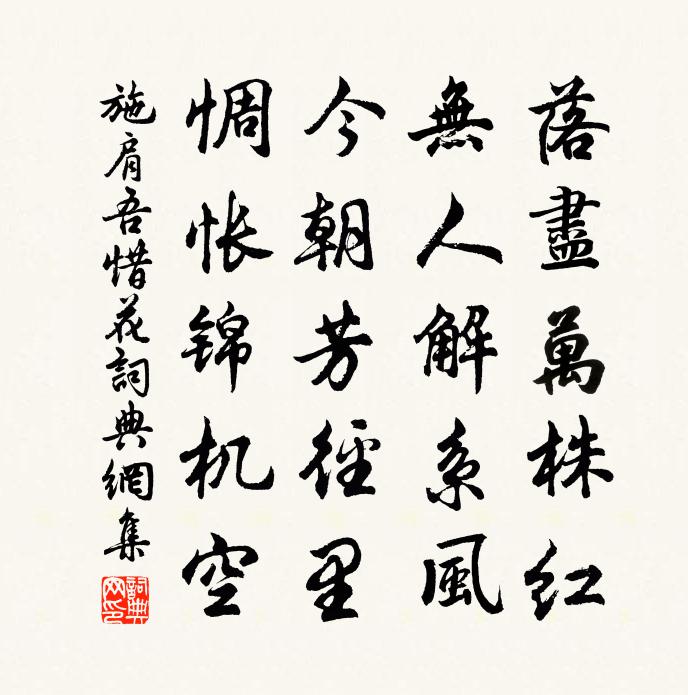 落盡萬株紅
無人解系風
今朝芳徑里
惆怅锦机空
施肩吾惜花詞典網集
詞典網印